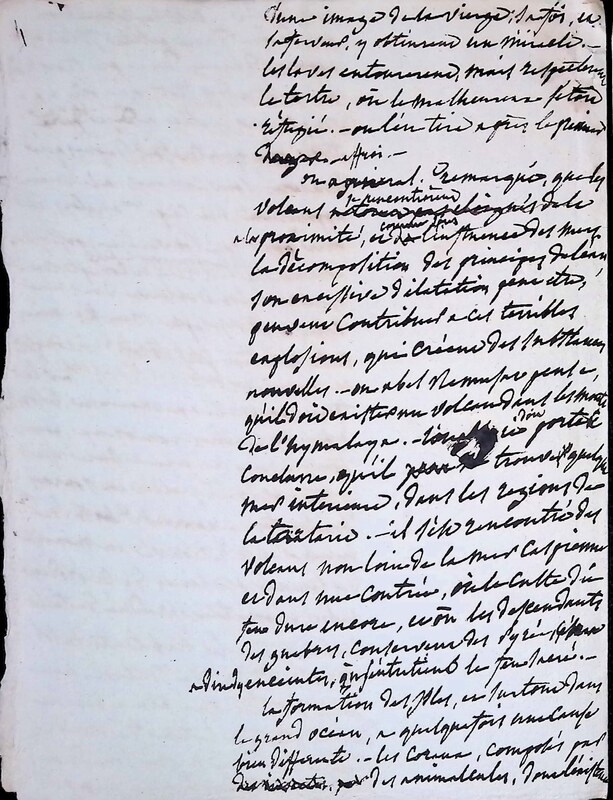 d'une image de la vierge, sa foi, et
sa ferveur, y obtinrent un miracle. —
les laves entourerent, mais respecterent
le tertre, où le malheureux s'etoit
réfugié. — on l'en tira après le premier
effroi. —
on a général. remarqué, que les
volcans se rencontroient de la
a la proximité, et comme sous l'influence des mers
la décomposition des principes de l'eau
son excessive dilatation peut etre,
peuvent contribuer a ces terribles
explosions, qui créent des substances
nouvelles. — on abel Remusat pense,
qu'il doit exister un volcan dans les monts
de l'hymalaya. — d'où porté à
conclure, qu'il trouve quelque
mer interieure, dans les regions de
la tartarie. — il s'est rencontré des
volcans non loin de la mer Caspienne
et dans une contrée, où le culte du
feu dure encore, et où les descendants
des guebres, conservent des pyrées
a d'indigènes, qu'entretient le feu sacré. —
la formation des isles, et surtout dans
le grand océan, a quelquefois une cause
bien differente. — les coraux, composés par
des animalcules, dont